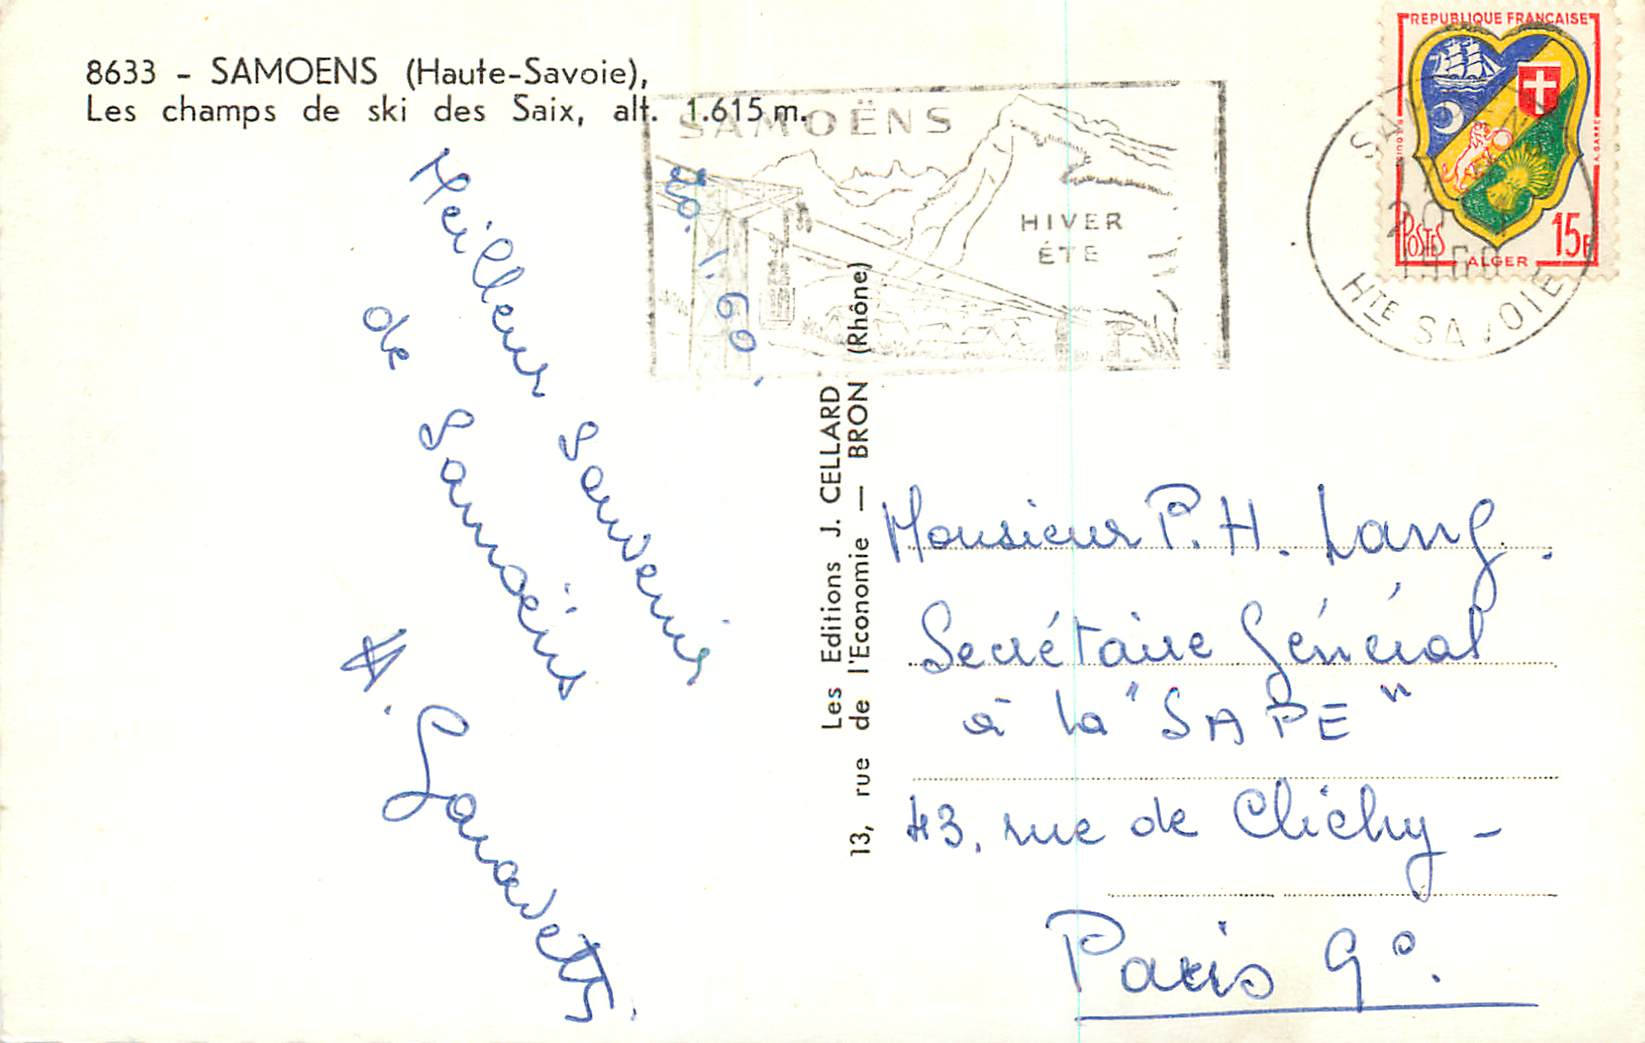 8633 - SAMOENS (Haute-Savoie),
Les champs de ski des Saix, alt. 1.615 m.
SAMOËNS
HIVER
ÉTÉ
REPUBLIQUE FRANÇAISE
POSTES
15F
ALGER
20
1960
HTE SAVOIE
20.1.60
Meilleur souvenir
de Samoëns
Les Editions J. CELLARD
13, rue de l'Economie — BRON (Rhône)
Monsieur P. H. Lang.
Secrétaire Général
à la "SAPE"
43, rue de Clichy -
Paris 9e.